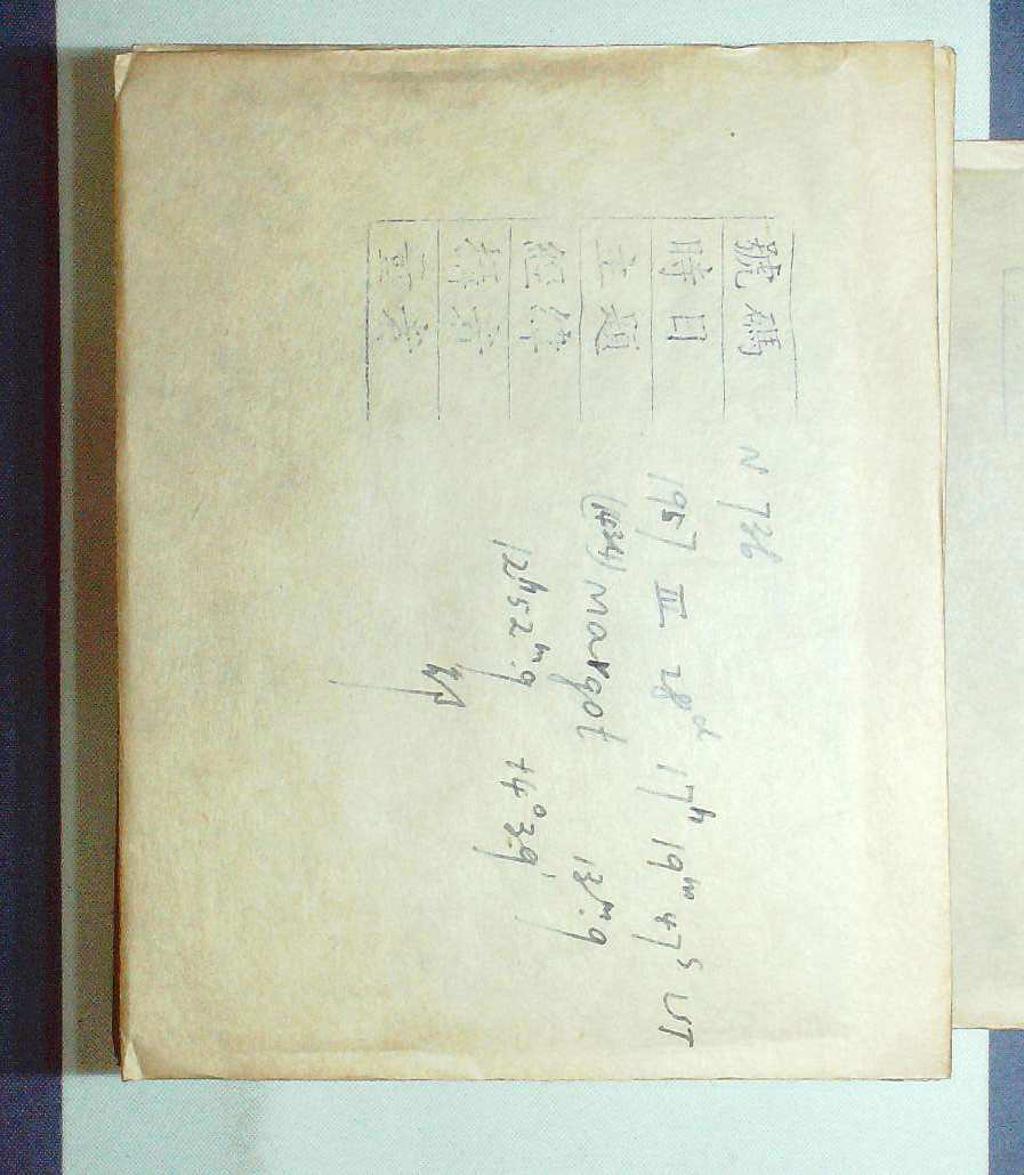 號碼 N 736
時日 1957 III 28d 17h 19m 47s UT
主題 (1434) Margot 13m.9
經緯 12h52m.9 +4°39'